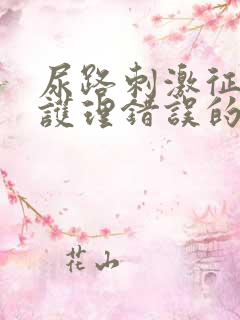 尿路刺激征
護理錯誤的
花山